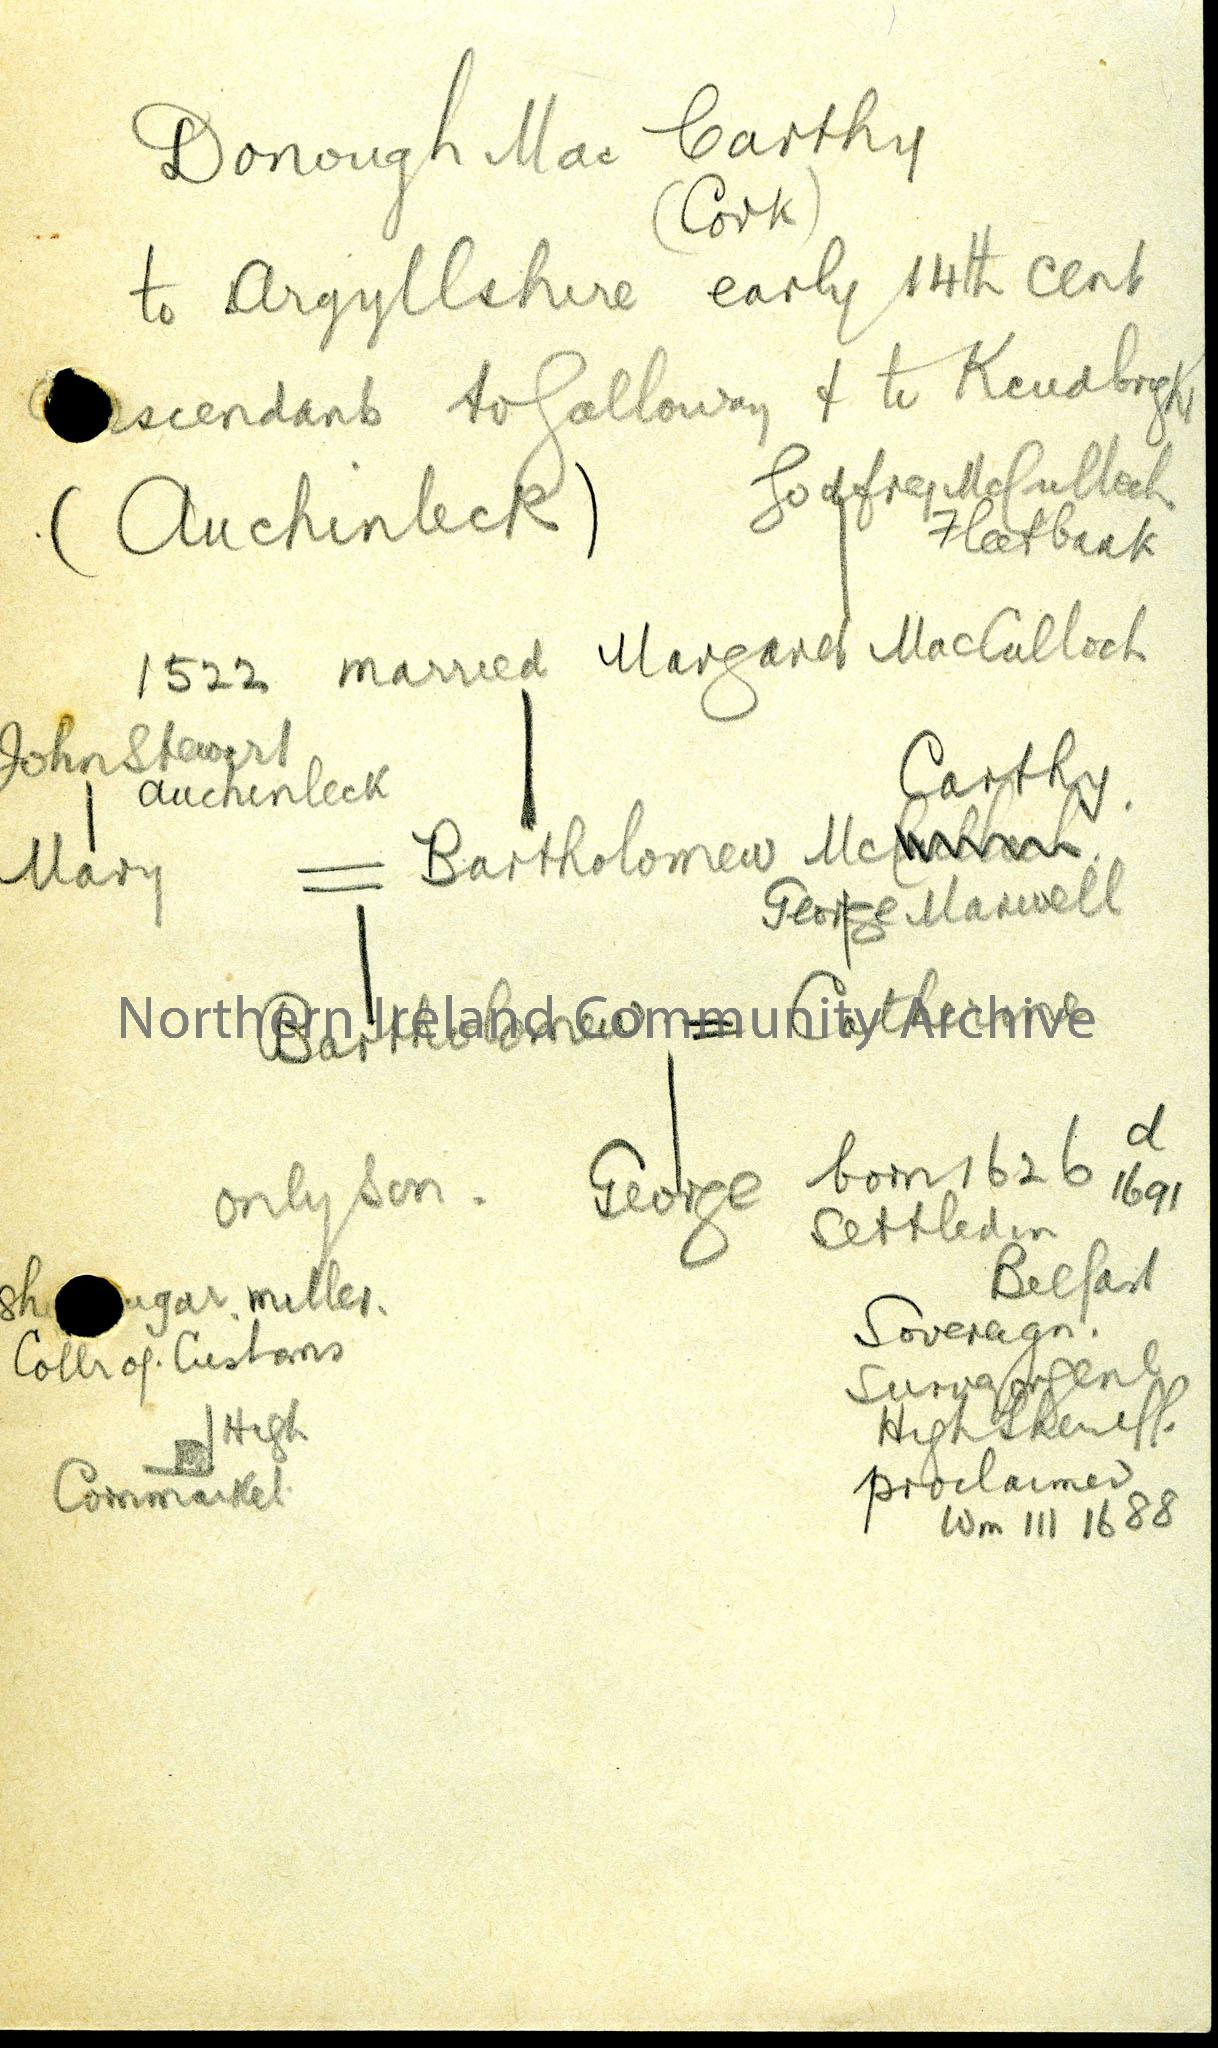 Donough Mac Carthy
(Cork)
to Argyllshire early 14th cent
escendants to Galloway & to
(Auchinleck)
Godfrey McCulloch
Fleetbank
1522 married Margaret MacCulloch
John Stewart
Auchenleck
Carthy.
Mary = Bartholomew Mc
George Maxwell
Bartholomew = Catherine
Northern Ireland Community Archive
only son. George born 1626 d
1691
settled in
Belfast
ugar miller.
Collr of Customs
High
Cornmarket
Soveragn.
High Sheriff.
proclaimed
Wm III 1688